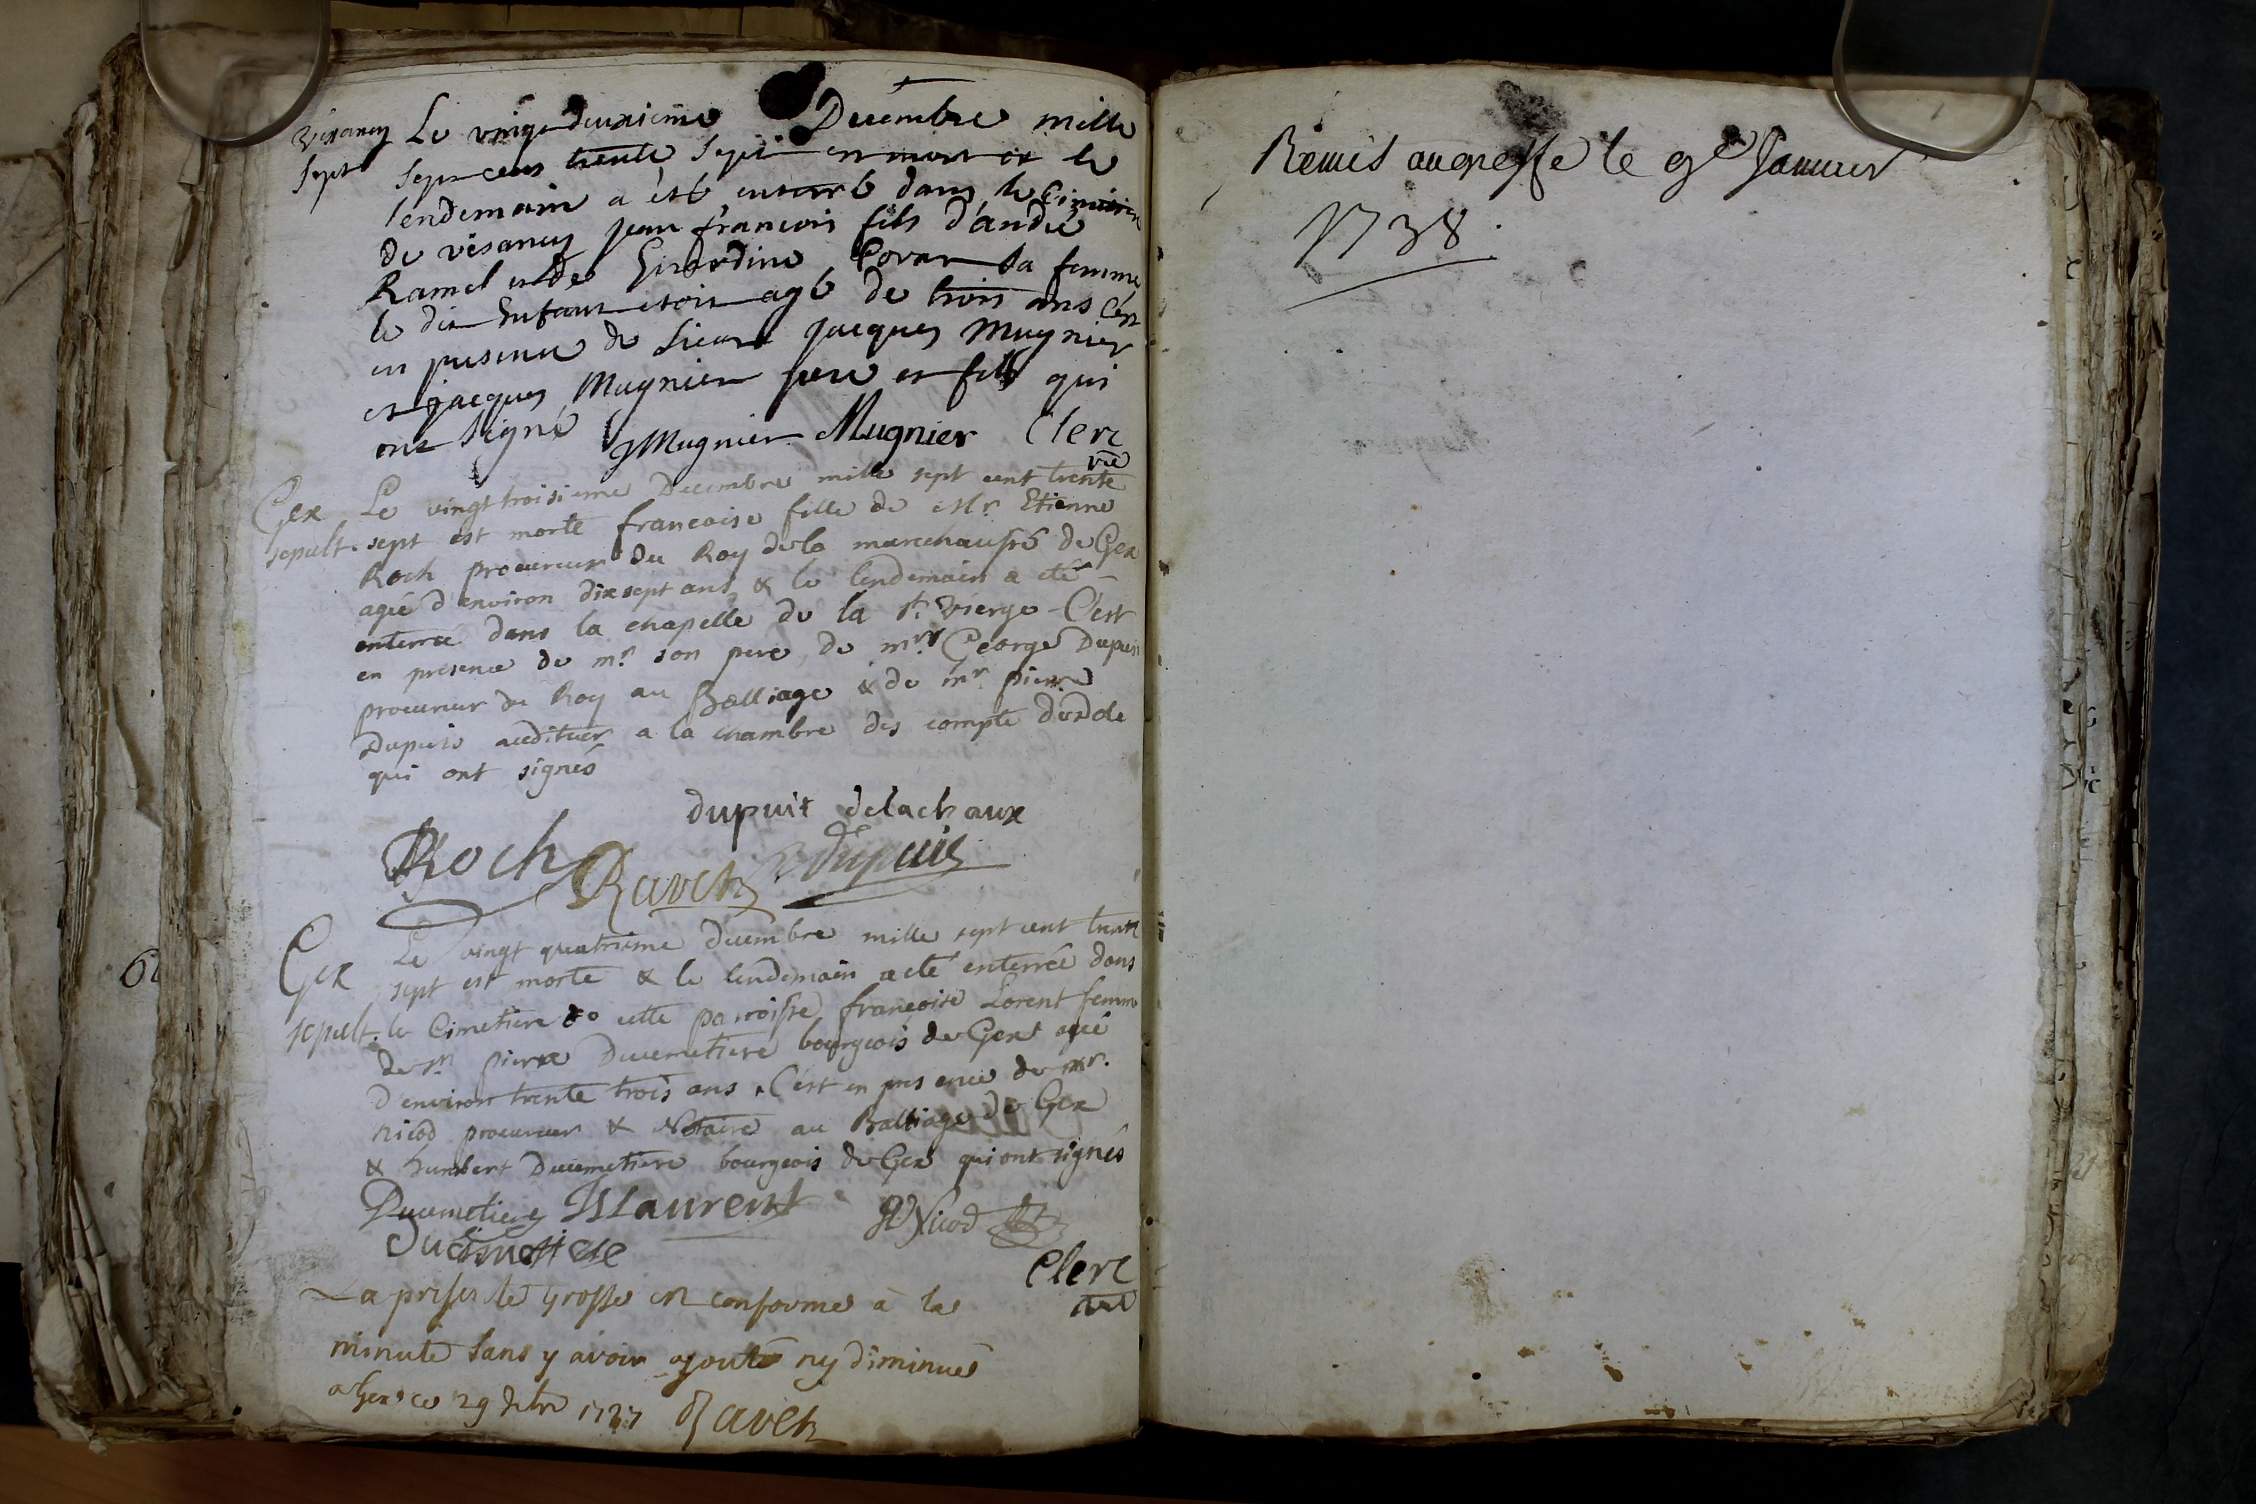 Vesancy Le vingt deuxieme Decembre mille
sept sept cens trente sept est mort et le
lendemain a été enterré dans le Cimitiere
de vesancy jean françois fils d'andre
Ramel et de Girardine sa femme
le dit Enfant etoit agé de trois ans C'est
en presence de Sieurs jacques Mugnier
et jacques Mugnier pere et fils qui
ont signé JMugnier Mugnier Clerc
vre
Gex Le vingt troisieme Decembre mille sept cent trente
sepult. sept est morte francoise fille de Mr Etienne
Roch procureur du Roy de la marechaussé de Gex
agée d'environ dix sept ans & le lendemain a eté
enterrée dans la chapelle de la Ste Vierge C'est
en presence de mr son pere, de mr George Dupuis
procureur du Roy au Balliage & de mr pierre
Dupuis auditeur a la chambre des compte de dole
qui ont signés
dupuit delachaux
Roch Ravet Dupuis
Gex Le vingt quatrieme decembre mille sept cent trente
sept est morte & le lendemain a eté enterrée dans
sepult. le Cimetiere de cette paroisse françoise Lorent femme
de Sr pierre Ducimetiere bourgeois de Gex agé
d'environ trente trois ans. C'est en presence de mr.
Nicod procureur & Notaire au Balliage de Gex
& humbert Ducimetiere bourgeois de Gex qui ont signés
Ducimetiere Laurent Nicod
Ducimetiere
Clerc
La presente grosse est conforme à la
minute sans y avoir ajouté ny diminué
a Gex ce 29 xbre 1737 Ravet
Remis au greffe le 9e Janvier
1738.